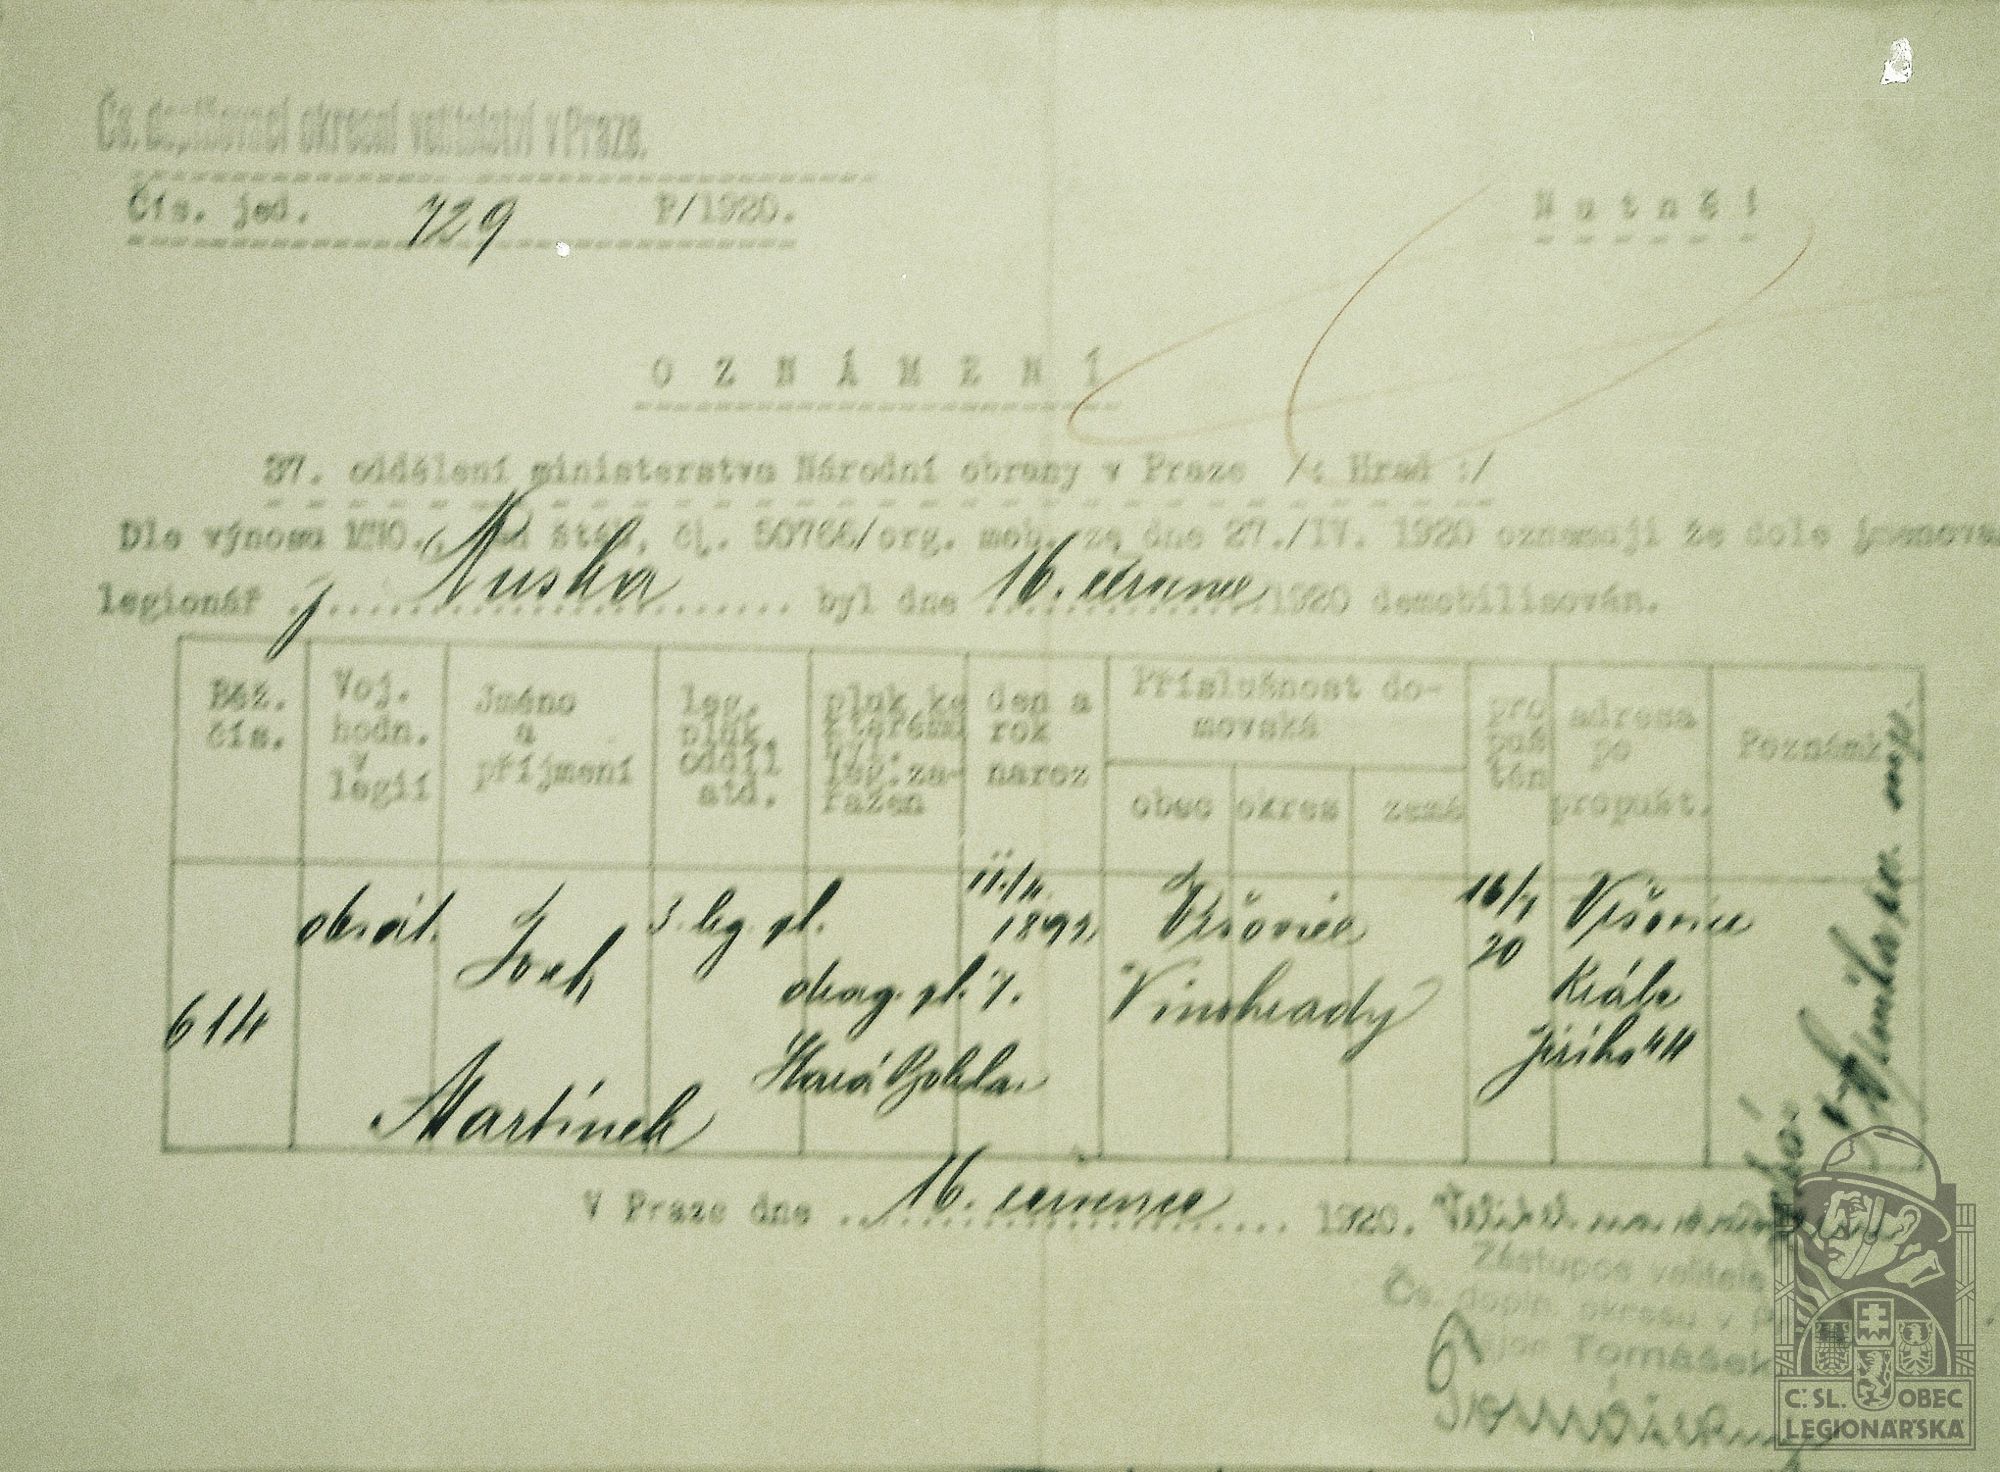 Čs. doplňovací okresní velitelství v Praze.
Čís. jed. 729 P/1920.
Nutné!
OZNÁMENÍ
37. oddělení ministerstva Národní obrany v Praze /: Hrad :/
Dle výnosu MNO., štáb, čj. 50766/org. mob. ze dne 27./IV. 1920 oznamuji že dole jmenova
legionář j. Ruska byl dne 16. června 1920 demobilisován.
Běž. čís.
Voj. hodn. v legii
Jméno a příjmení
leg. pluk oddíl atd.
pluk ke kterému byl leg. zařazen
den a rok naroz
Příslušnost domovská
obec okres země
propuštěn
adresa po propušt.
Poznámk
614
Martínek
3. leg. pl.
drag. pl. 7.
Stará Bolesla
Vršovice
Vinohrady
20
Vršovice
Krále
Jiřího 44
V Praze dne 16. července 1920.
Zástupce velitele
Čs. dopln. okresu v P
Tomášek
Č. SL. OBEC
LEGIONÁŘSKÁ